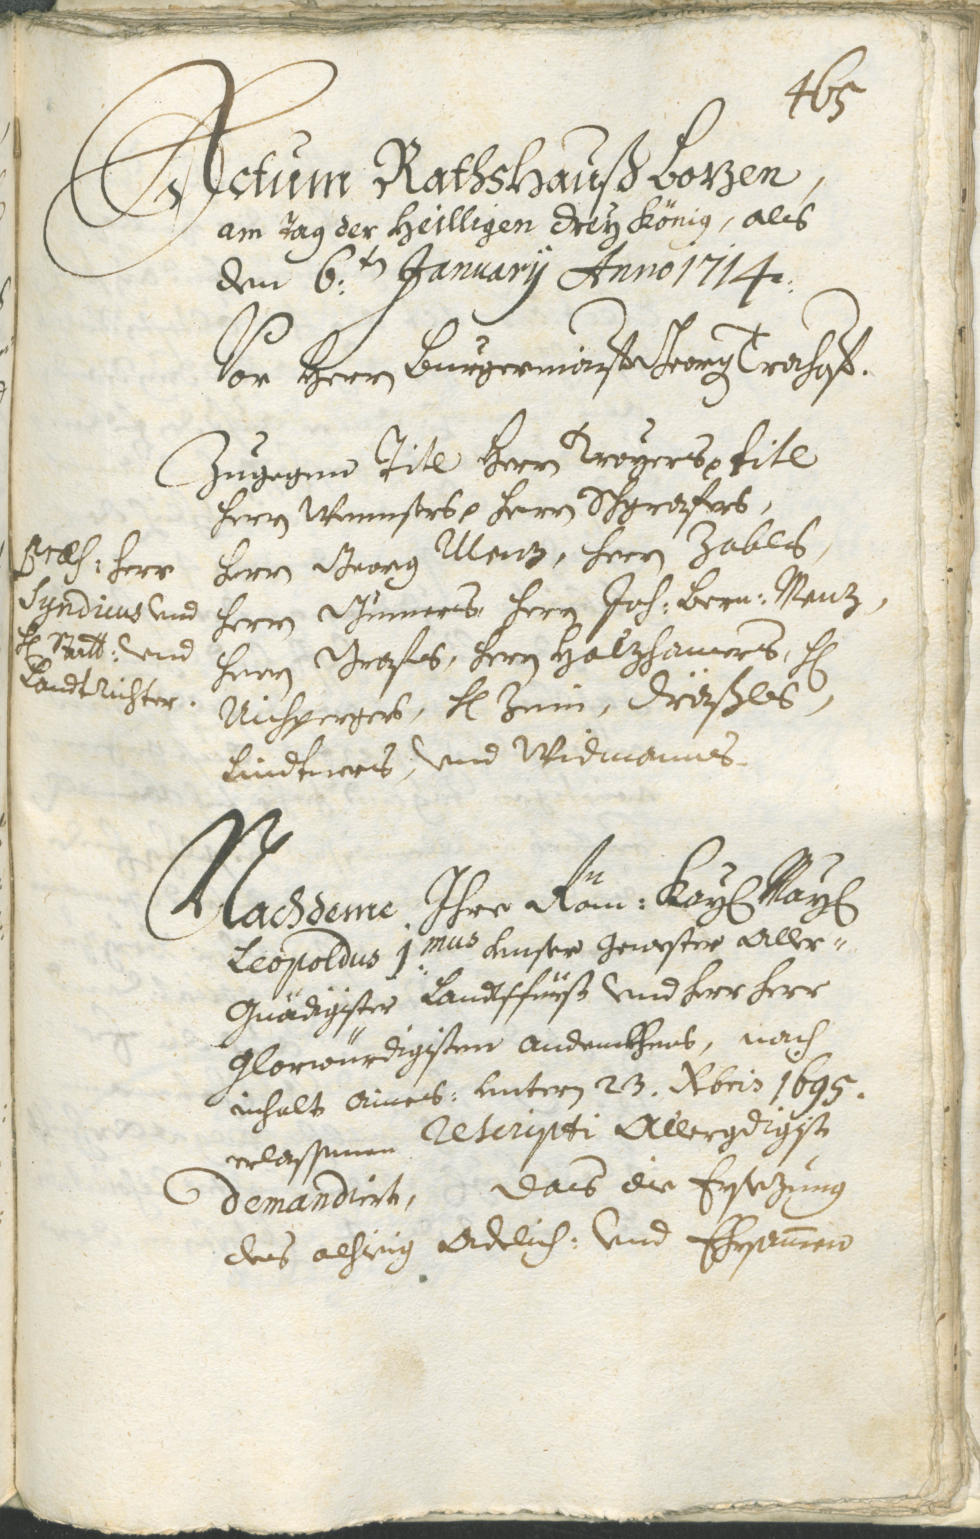 465
Actum Rathshauß Bozen,
am tag der Heilligen drey König, als
den 6:ten January Anno 1714.
Vor Herrn Burgermaister Georg
Zugegen Titl Herrn Troyers, titl
Herrn Herrn
Herrn Georg Menz, Herrn Zables,
Herrn Gumers, Herrn Joh: Bern: Menz,
Herrn Grafes, Herrn Holzhamers, H:
H: Zeni,
Lindtners, und Widmanns
Præs: Herr
Syndicus und
H: Statt: und
Landtrichter.
Nachdeme Ihre Röm: Kay: May:
Leopoldus 1:mus Unser gewester Aller=
Gnädigister Landtsfürst und Herr Herr
Glorwürdigisten andenkhens, nach
inhalt aines: untern 23. Xbris 1695.
erlassnen Rescripti Allergdigist
demandiert, das die Ersezung
des alhieig Adelich: und Ehrsamen